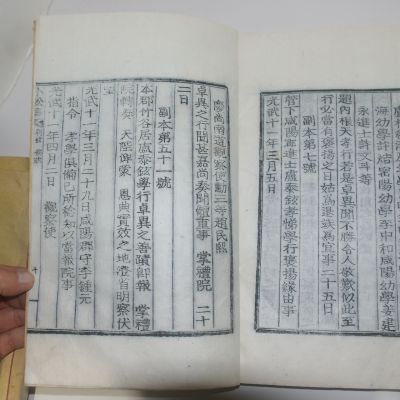 海幼學許結密陽幼學李中和咸陽幼學姜建
永進士許文玉等
題內稱天孝行若是卓異聞不勝令人敬歎似此至
行必當有褒揚之日姑爲退爲宜事二十五日
副本第七號
管下咸陽郡進士盧泰鉉孝悌學行褒揚緣由事
光武十一年三月五日
慶尙南道觀察使勳三等趙民熙
卓異之行聞甚嘉尙奏聞體重事 掌禮院 二十
二日
副本第五十一號
本郡竹谷居盧泰鉉學行卓異之蹟卽報 掌禮
院轉奏 天陛俾蒙 恩典實效之地自明察伏
望
光武十一年三月二十九日咸陽郡守李鍾元
指令 孝學與倫已所稔知以當報院事
光武十一年四月二日 觀察使